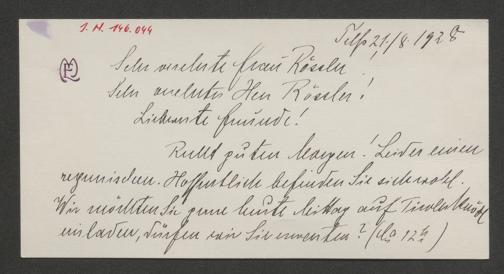 I. N. 146.044
Telfs 21./8. 1928
Sehr verehrte Frau Rössler,
Sehr verehrter Herr Rössler!
Liebwerte Freunde!
Recht guten Morgen! Leider einen
regnerischen. Hoffentlich befinden Sie sich wohl.
Wir möchten Sie gerne heute Mittag auf Tiroler Knödl
einladen, dürfen wir Sie erwarten? (Ca 12h)